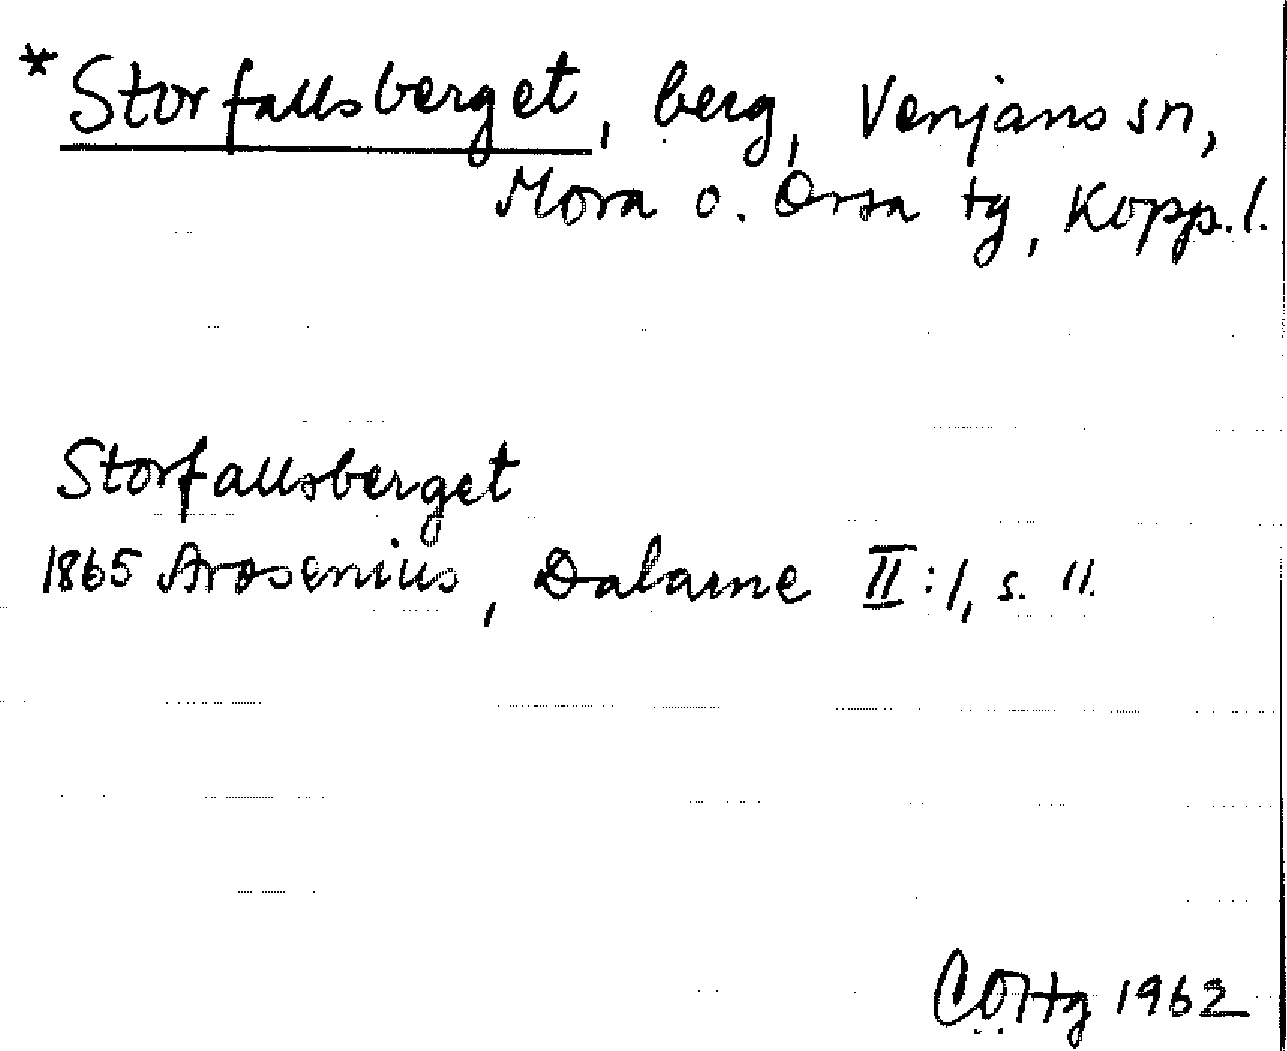 *Storfallsberget, berg, Venjans sn,
Mora o. Orsa tg, Kopp. l.
Storfallsberget
1865 Arosenius, Dalarne II:1, s. 11.
1962